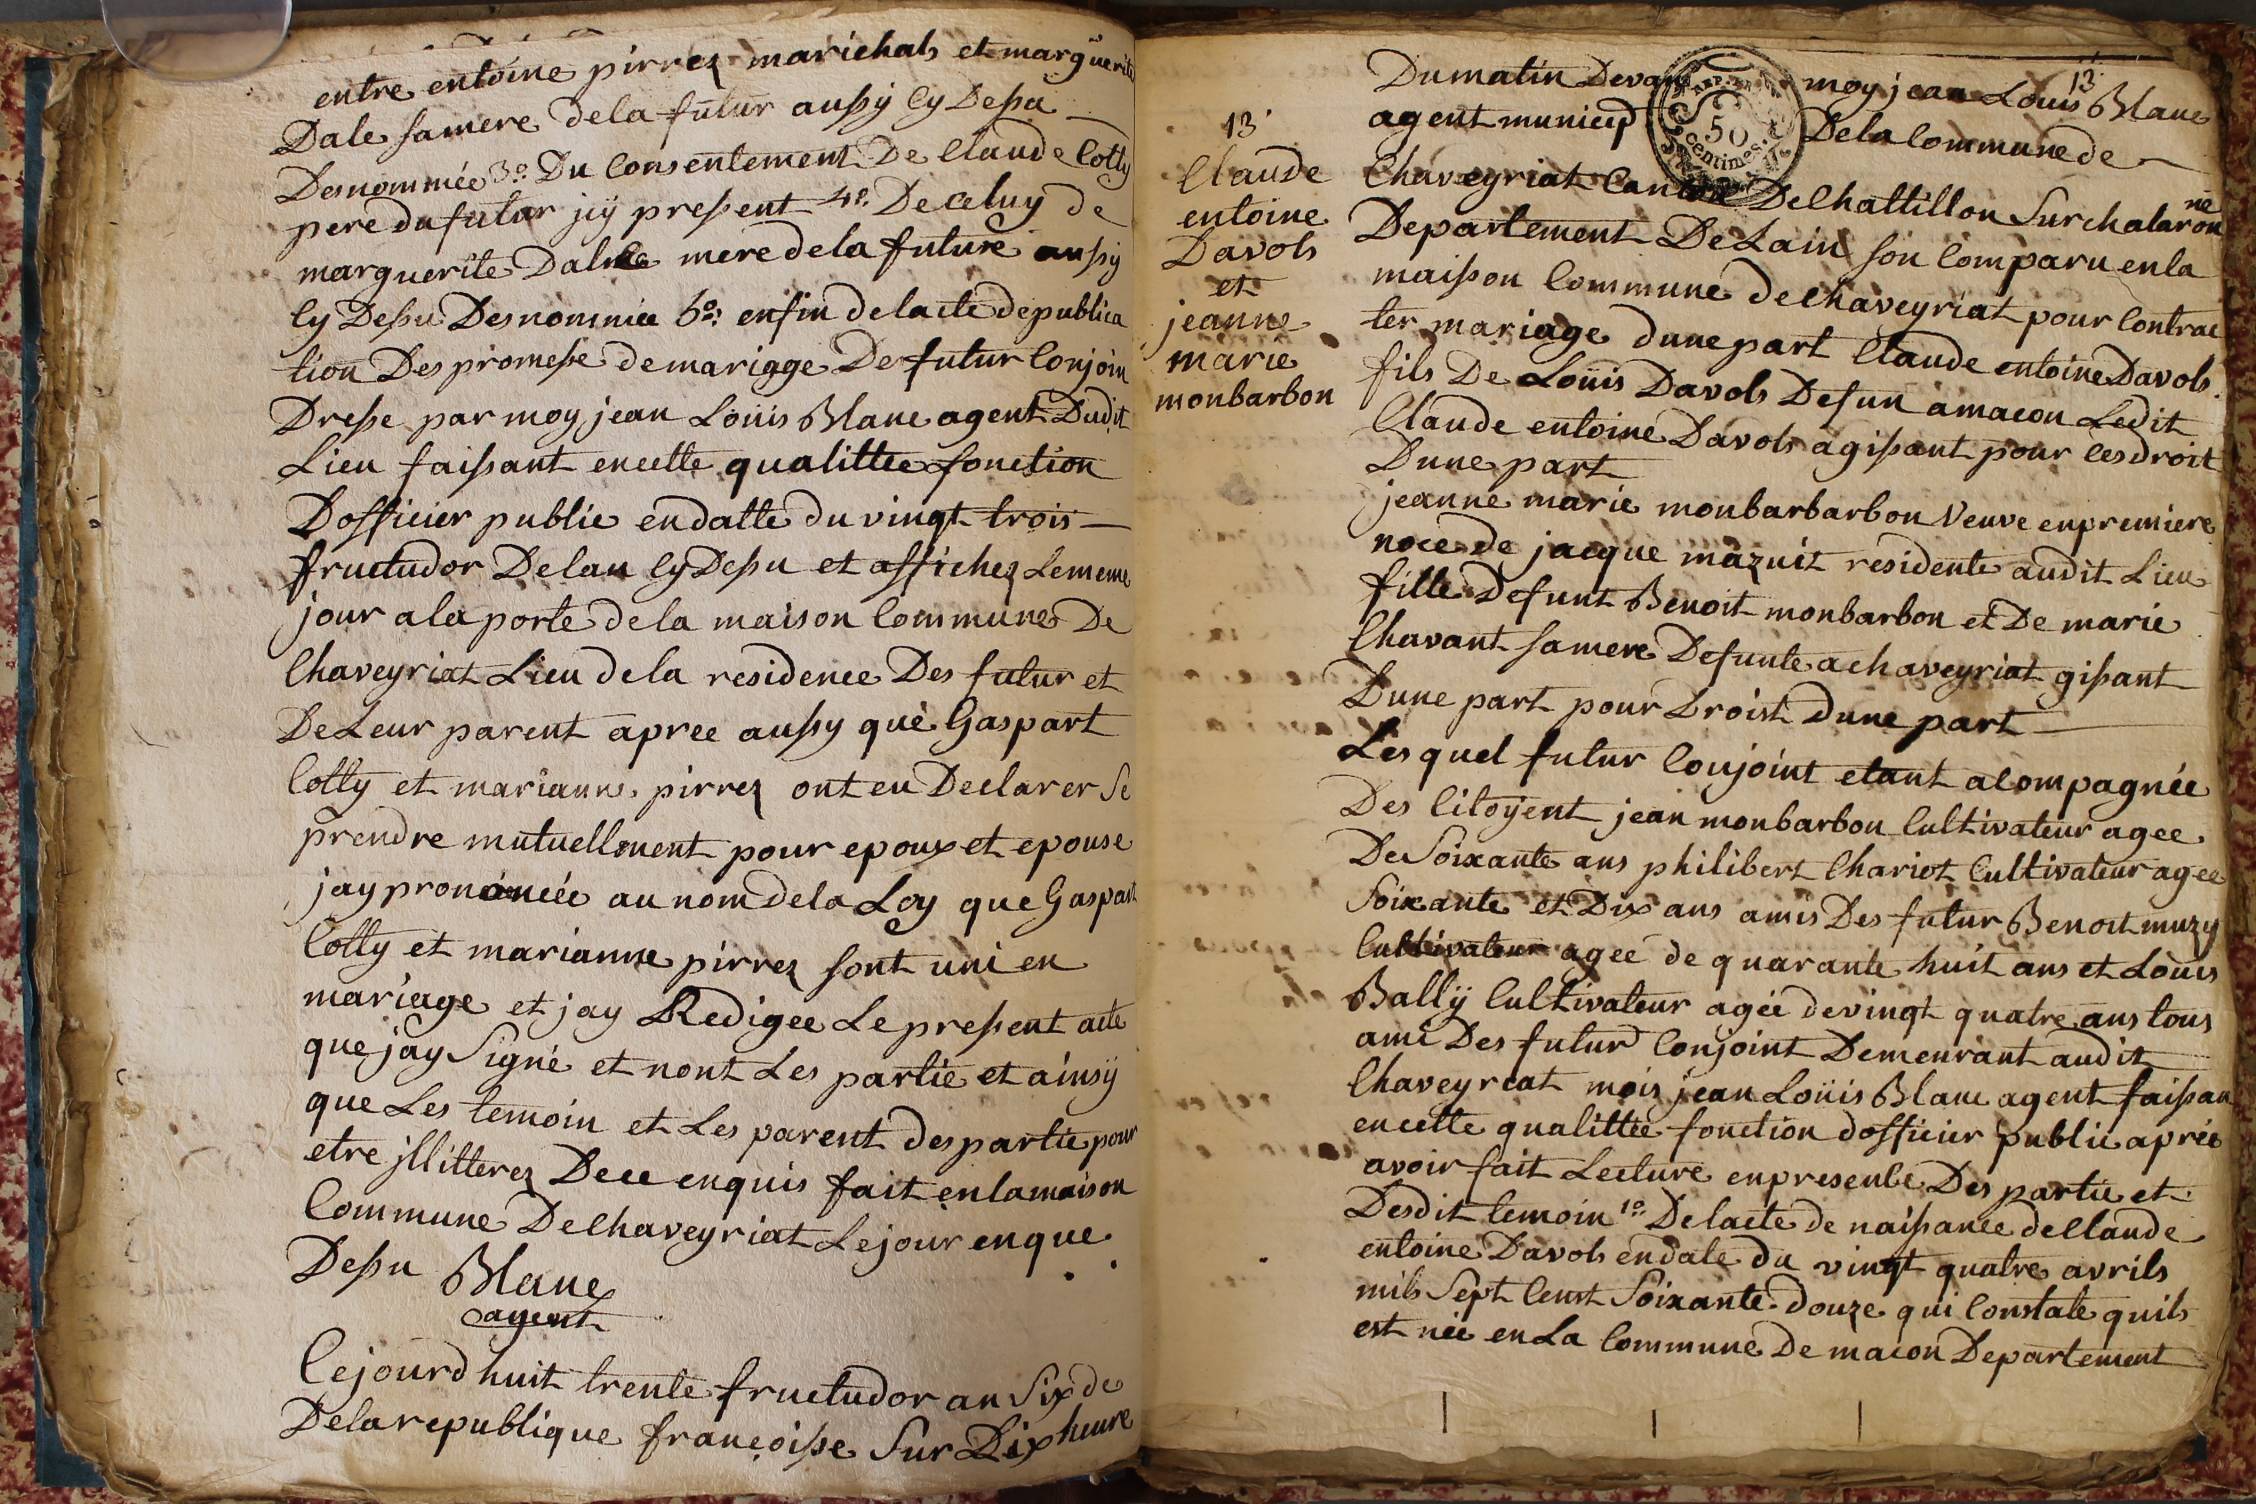 entre entoine pirrez marichals et marguerite
Dale samere dela futur aussÿ Cy Dessu
Desnommée 3º Du Consentement De Claude Colly
pere du futur jcÿ pressent 4º. De celuy de
marguerite Dalle mere dela future aussy
Cy Dessu Desnommée 5º: enfin delacte depublica
tion Des promesse demariage De futur Conjoin
Dresse par moy jean Loüis Blanc agent Dudit
Lieu faissant encette qualittee fonction
Dofficier public endatte du vingt trois
fructudor Delan Cy Dessu et affichez Lememe
jour a la porte dela maison Commune De
Chaveyriat Lieu dela residence Des futur et
DeLeur parent apree aussy que Gaspart
Colly et marianne pirrez ont eu Declarer Se
prendre mutuellement pour epoux et epouse
jay prononcée au nom dela Loy que Gaspart
Colly et marianne pirrez sont uni en
mariage et jay Redigee Le pressent acte
que jay Signé et nont Les partie et ainsÿ
que Les temoin et Les parent des partie pour
etre jllitterez Dece enquis fait enlamaison
Commune Dechaveyriat Lejour enque
Dessu Blanc
agent
Cejourd huit trente fructudor an Six de
Delarepublique françoisse Sur Dix heure
13
Dumatin Devant moy jean Louis Blanc
agent municip Dela Commune de
Chaveyriat Canton DeChattillon Sur chalaronne
Departement DeLain son Comparu enla
maisson Commune dechaveyriat pour Contrac
ter mariage dunepart Claude entoine Davols
fils De Loüis Davols Defun amacon Ledit
Claude entoine Davols agissant pour ces droit
Dune part
13
Claude
entoine
Davols
et
jeanne
marie
monbarbon
jeanne marie monbarbarbon veuve enpremiere
noce de jacque mazuit residente audit Lieu
fille Defunt Benoit monbarbon et De marie
Chavant samere Defunte a chaveyriat gissant
Dune part pour Droist dune part
Les quel futur Conjoint etant acompagnée
Des Citoÿent jean monbarbon Cultivateur agee
DeSoixante ans philibert Chariot Cultivateur agee
Soixante et Dix ans amis Des futur Benoit muzy
Cultivateur agee de quarante huit ans et Loüis
Ballÿ Cultivateur agée devingt quatre ans tous
ami Des futur Conjoint Demeurant audit
Chaveyreat mois jean Loüis Blanc agent faissan
encette qualittee fonction dofficier public aprée
avoir fait Lecture enpresence Des partie et
Desdit temoin 1º. Delacte de naissance declaude
entoine Davols endate du vingt quatre avrils
mils Sept Cent Soixante douze qui Constate quils
est née en La Commune De macon Departement